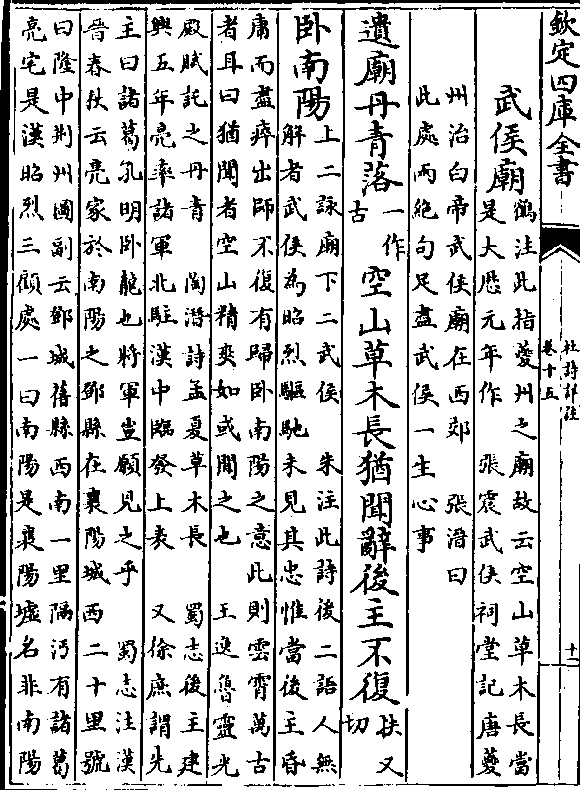 欽定四庫全書
杜詩詳註
卷十五
十一
武侯廟 鶴注此指夔州之廟故云空山草木長當
是大厯元年作　張震武侯祠堂記唐夔
州治白帝武侯廟在西郊　張溍曰
此處兩絶句足盡武侯一生心事
遺廟丹青落 一作古 空山草木長猶聞辭後主不復 扶又切
卧南陽 上二詠廟下二武侯　朱注此詩後二語人無
解者武侯為昭烈驅馳未見其忠惟當後主昏
庸而盡瘁出師不復有歸卧南陽之意此則雲霄萬古
者耳曰猶聞者空山精爽如或聞之也　王逸魯靈光
殿賦託之丹青　陶潛詩孟夏草木長　蜀志後主建
興五年亮率諸軍北駐漢中臨發上表　又徐庶謂先
主曰諸葛孔明卧龍也將軍豈願見之乎　蜀志注漢
晉春秋云亮家於南陽之鄧縣在襄陽城西二十里號
曰隆中荆州圖副云鄧城舊縣西南一里隔沔有諸葛
亮宅是漢昭烈三顧處一曰南陽是襄陽墟名非南陽